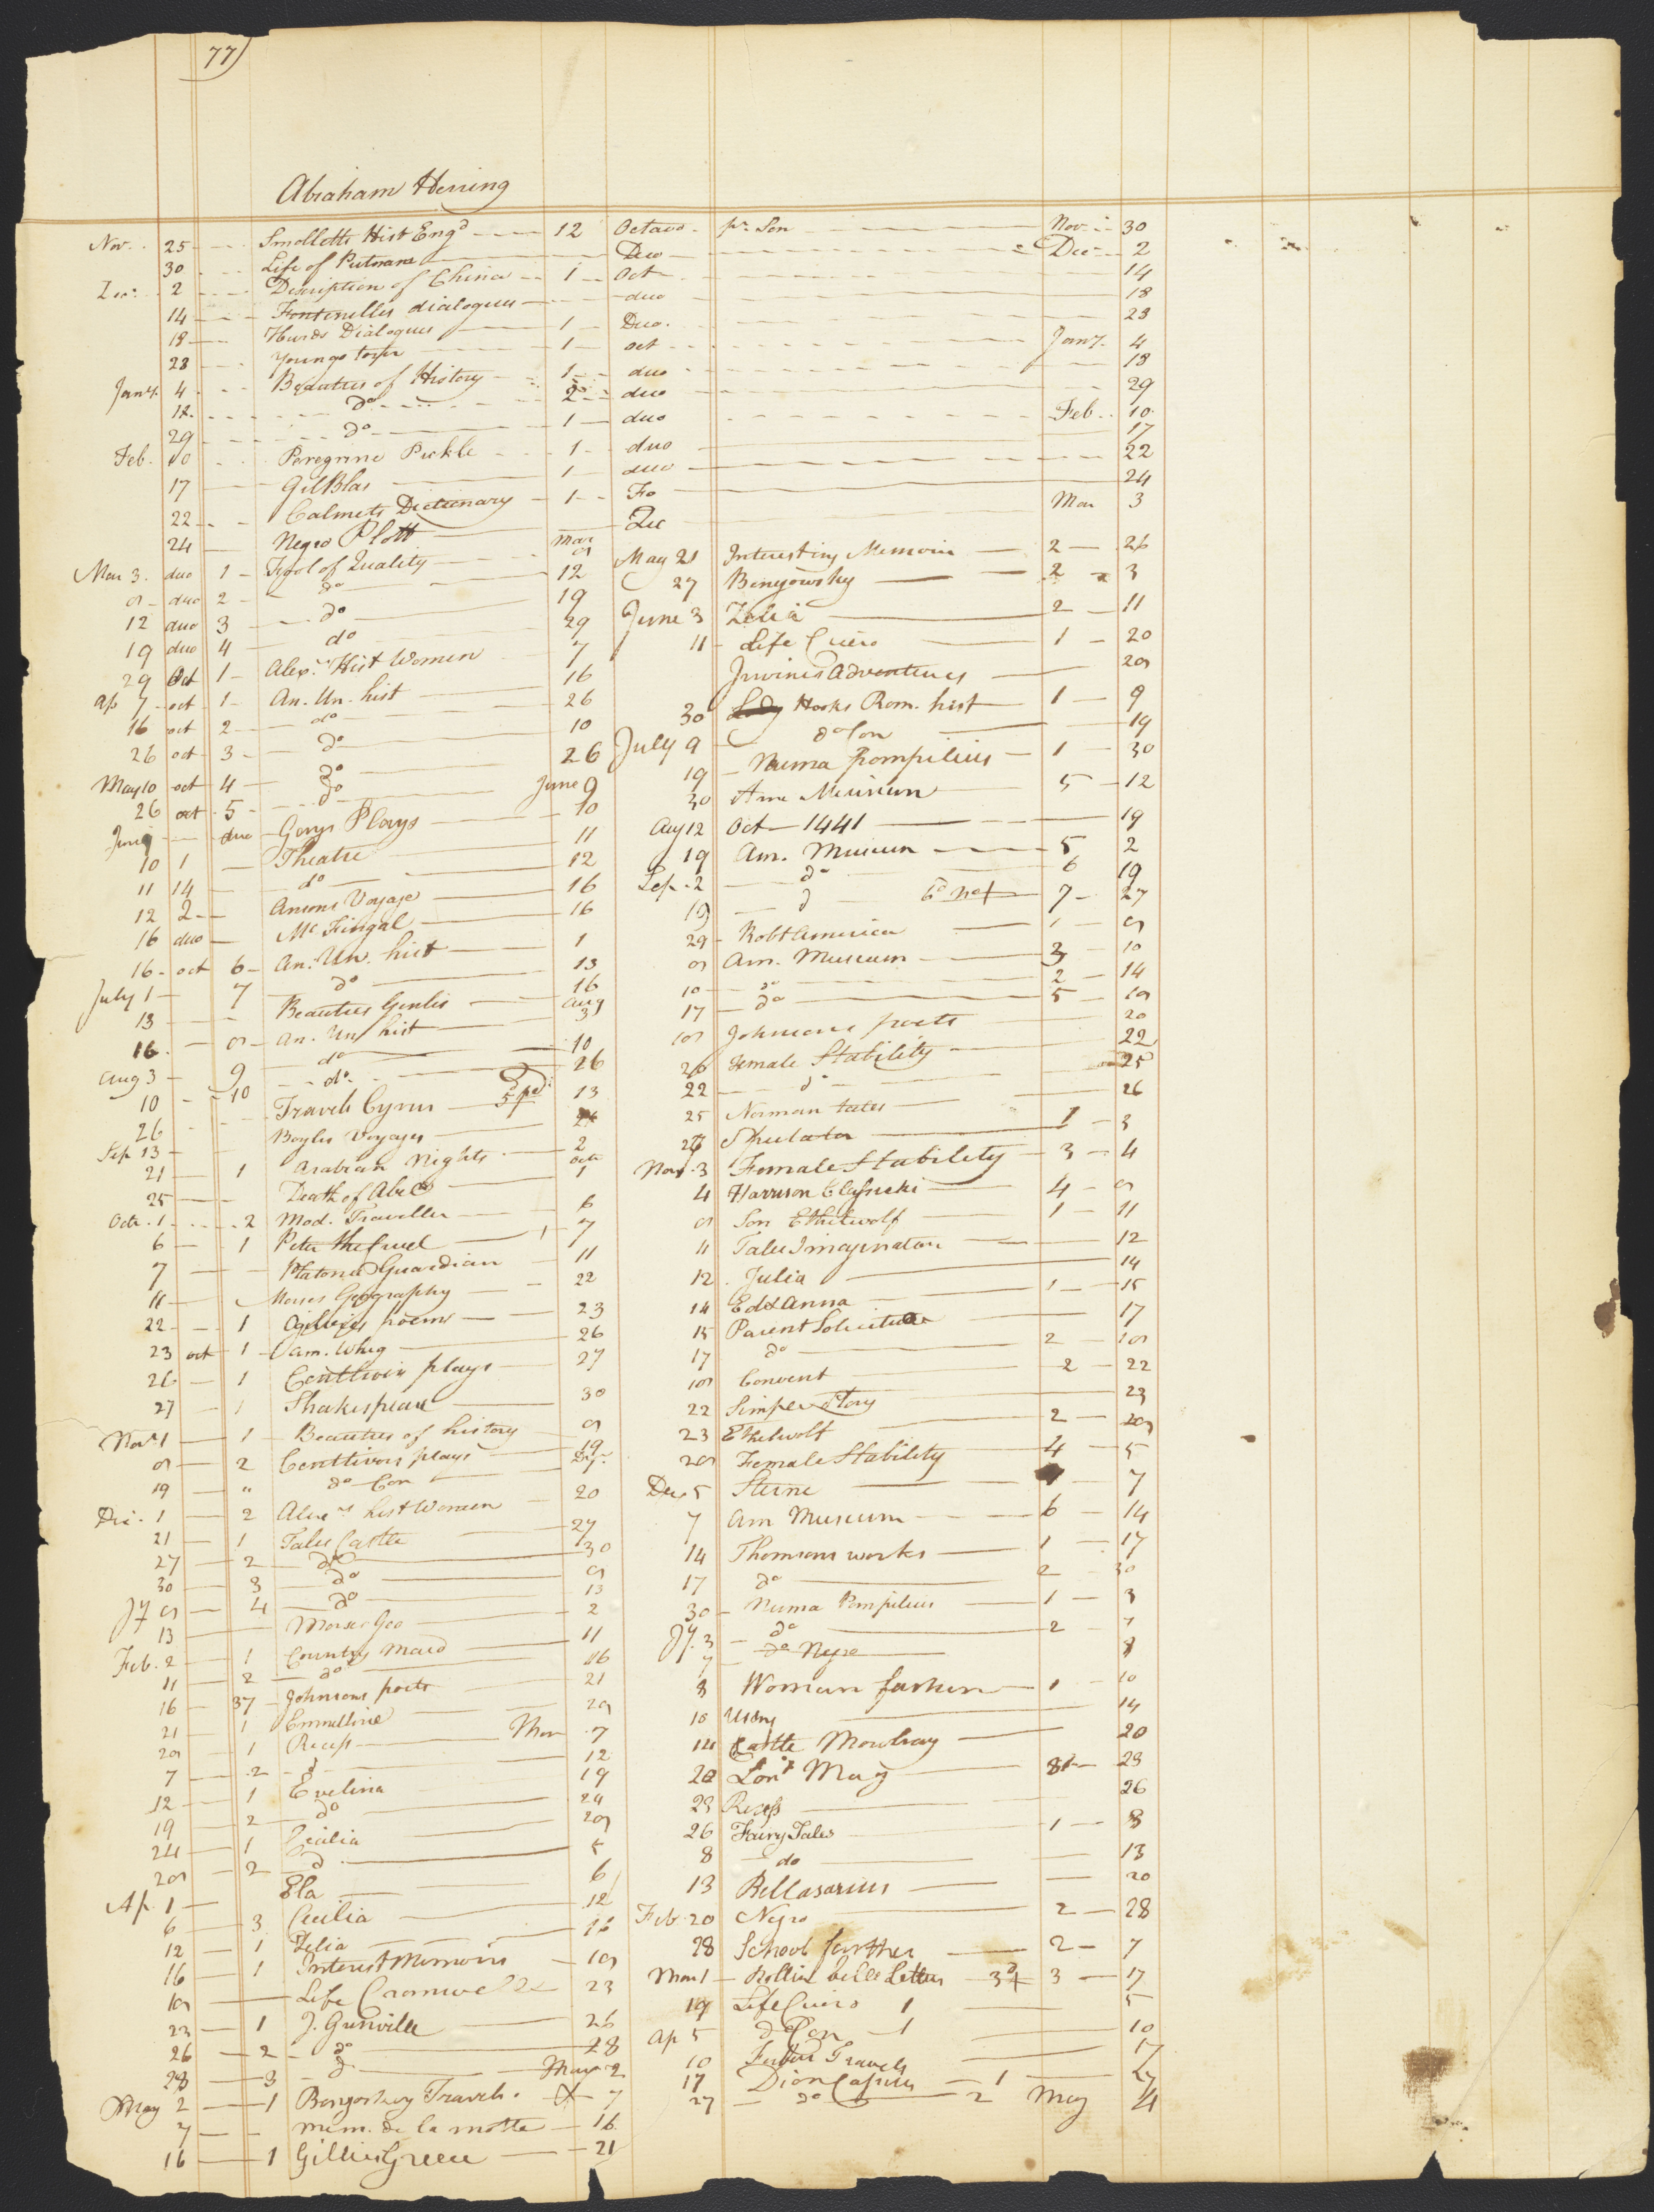 77)
Abraham Herring
Nov. 25 Smolletts Hist Engd 12 Octavo pr. Son Nov. 30
30 Life of Putnam Duo Dec 2
Dec. 2 Description of China 1 Oct 14
14 Fontenelles dialogues duo 18
18 Hurds Dialogues 1 Duo. 23
23 Youngs 1 oct Jany. 4
Jany. 4 Beauties of History 1 duo 18
18 do 2 duo 29
29 do 1 duo Feb. 10
Feb. 10 Peregrine Pickle 1 duo 17
17 Gil Blas 1 duo 22
22 Calmets Dictionary 1 Fo 24
24 Negro Plott Mar 3
Mar 3. duo 1 Fool of Quality Mar 8
8 duo 2 do 12
12 duo 3 do 19
19 duo 4 do 29
29 Oct 1 Alexr. Hist Women 7
Ap 7 oct 1 An. Un. hist 16
16 oct 2 do 26
26 oct 3 do 10
May 10 oct 4 do 26
26 oct 5 do June 9
June 9 duo Gays Plays 10
10 1 Theatre 11
11 14 do 12
12 2 Ansons Voyage 16
16 duo Mc Fingal 16
16 oct 6 An. Un. hist 1
July 1 7 do 13
13 Beauties Genlis 16
16 8 An. Un hist Aug 3
Aug 3 9 do 10
10 10 do 26
26 Travels Cyrus 5d pd. 13
Sep 13 Boyles Voyages 21
21 1 Arabian Nights 2
25 Death of Abel Octr 1
Octr. 1 2 Mod. Traveller 6
6 1 Peter the Cruel 7
7 Platonic Guardian 11
11 Morses Geography 22
22 1 Ogilvies poems 23
23 oct 1 Am. Whig 26
26 1 Centlivres plays 27
27 1 Shakespeare 30
Novr 1 1 Beauties of history 8
8 2 Centlivers plays 19
19 " do Con
Dec. 1 2 Alexrs hist Women 20
21 1 Tales Castle 27
27 2 do 30
30 3 do 8
Jy 8 4 do 13
13 Morses Geo 2
Feb. 2 1 Country Maid 11
11 2 do 16
16 37 Johnsons poets 21
21 1 Emmeline 28
28 1 Recess Mar 7
7 2 do 12
12 1 Evelina 19
19 2 do 24
24 1 Cecilia 28
28 2 do 5
Ap. 1 Ela 6
6 3 Cecilia 12
12 1 Zelia 16
16 1 Interest Memoirs 18
18 Life Cromwell 23
23 1 J. Grenville 26
26 2 do 28
28 3 do May 2
May 2 1 Benyoskey Travels 7
7 Mem. de la motte 16
16 1 Gillies Greece 21
May 21 Interesting Memoirs 2 26
27 Benyowsky 2 3
June 3 Zelia 2 11
11 Life Cicero 1 20
Irvines Adventures 28
30 Hooks Rom. hist 1 9
July 9 do Con 19
19 Numa Pompilius 1 30
30 Ame Museum 5 12
Aug 12 Oct 1441 19
19 Am. Museum 5 2
Sep. 2 do 6 19
19 do 6d 7 27
29 Robt America 1 8
8 Am. Museum 3 10
10 do 2 14
17 do 5 18
18 Johnsons poets 20
20 Female Stability 22
22 do 25
25 Norman tales 26
26 Spectator 1 3
Nov. 3 Female Stability 3 4
4 Harrison Classicks 4 8
8 Son Ethelwolf 1 11
11 Tales Imagination 12
12 Julia 14
14 Ed & Anna 1 15
15 Parent Solicitude 17
17 do 2 18
18 Convent 2 22
22 Simple Story 23
23 Ethelwolf 2 28
28 Female Stability 4 5
Dec 5 Sterne 7
7 Am Museum 6 14
14 Thomsons works 1 17
17 do 2 30
30 Numa Pompilius 1 3
Jy. 3 do 2 7
7 do Negro 8
8 Woman fashion 1 10
10 14
14 Castle Mowbray 20
20 Lond Mag 23
23 Recess 26
26 Fairy Tales 1 8
8 do 13
13 Bellasarius 20
Feb 20 Negro 2 28
28 School for 2 7
Mar 1 Rollin belle Letters 3d 3 17
19 Life Cicero 1 5
Ap 5 do Con 1 10
10 Travels 17
17 Dion Cassius 1 27
27 do 2 May 4